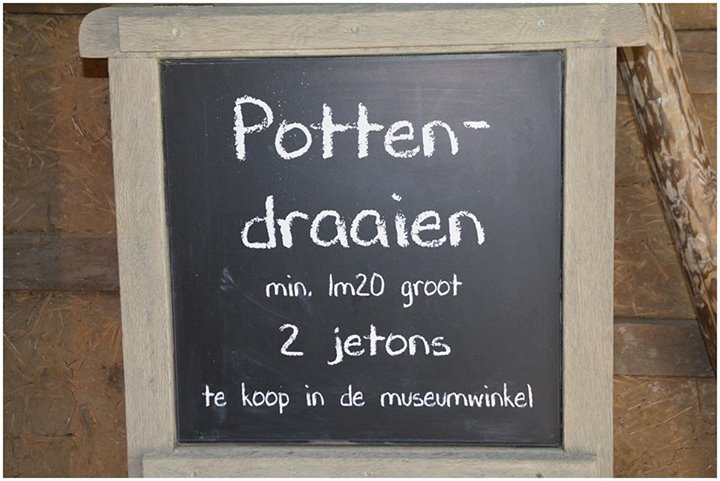 Potten-
draaien
min. 1m20 groot
2 jetons
te koop in de museumwinkel